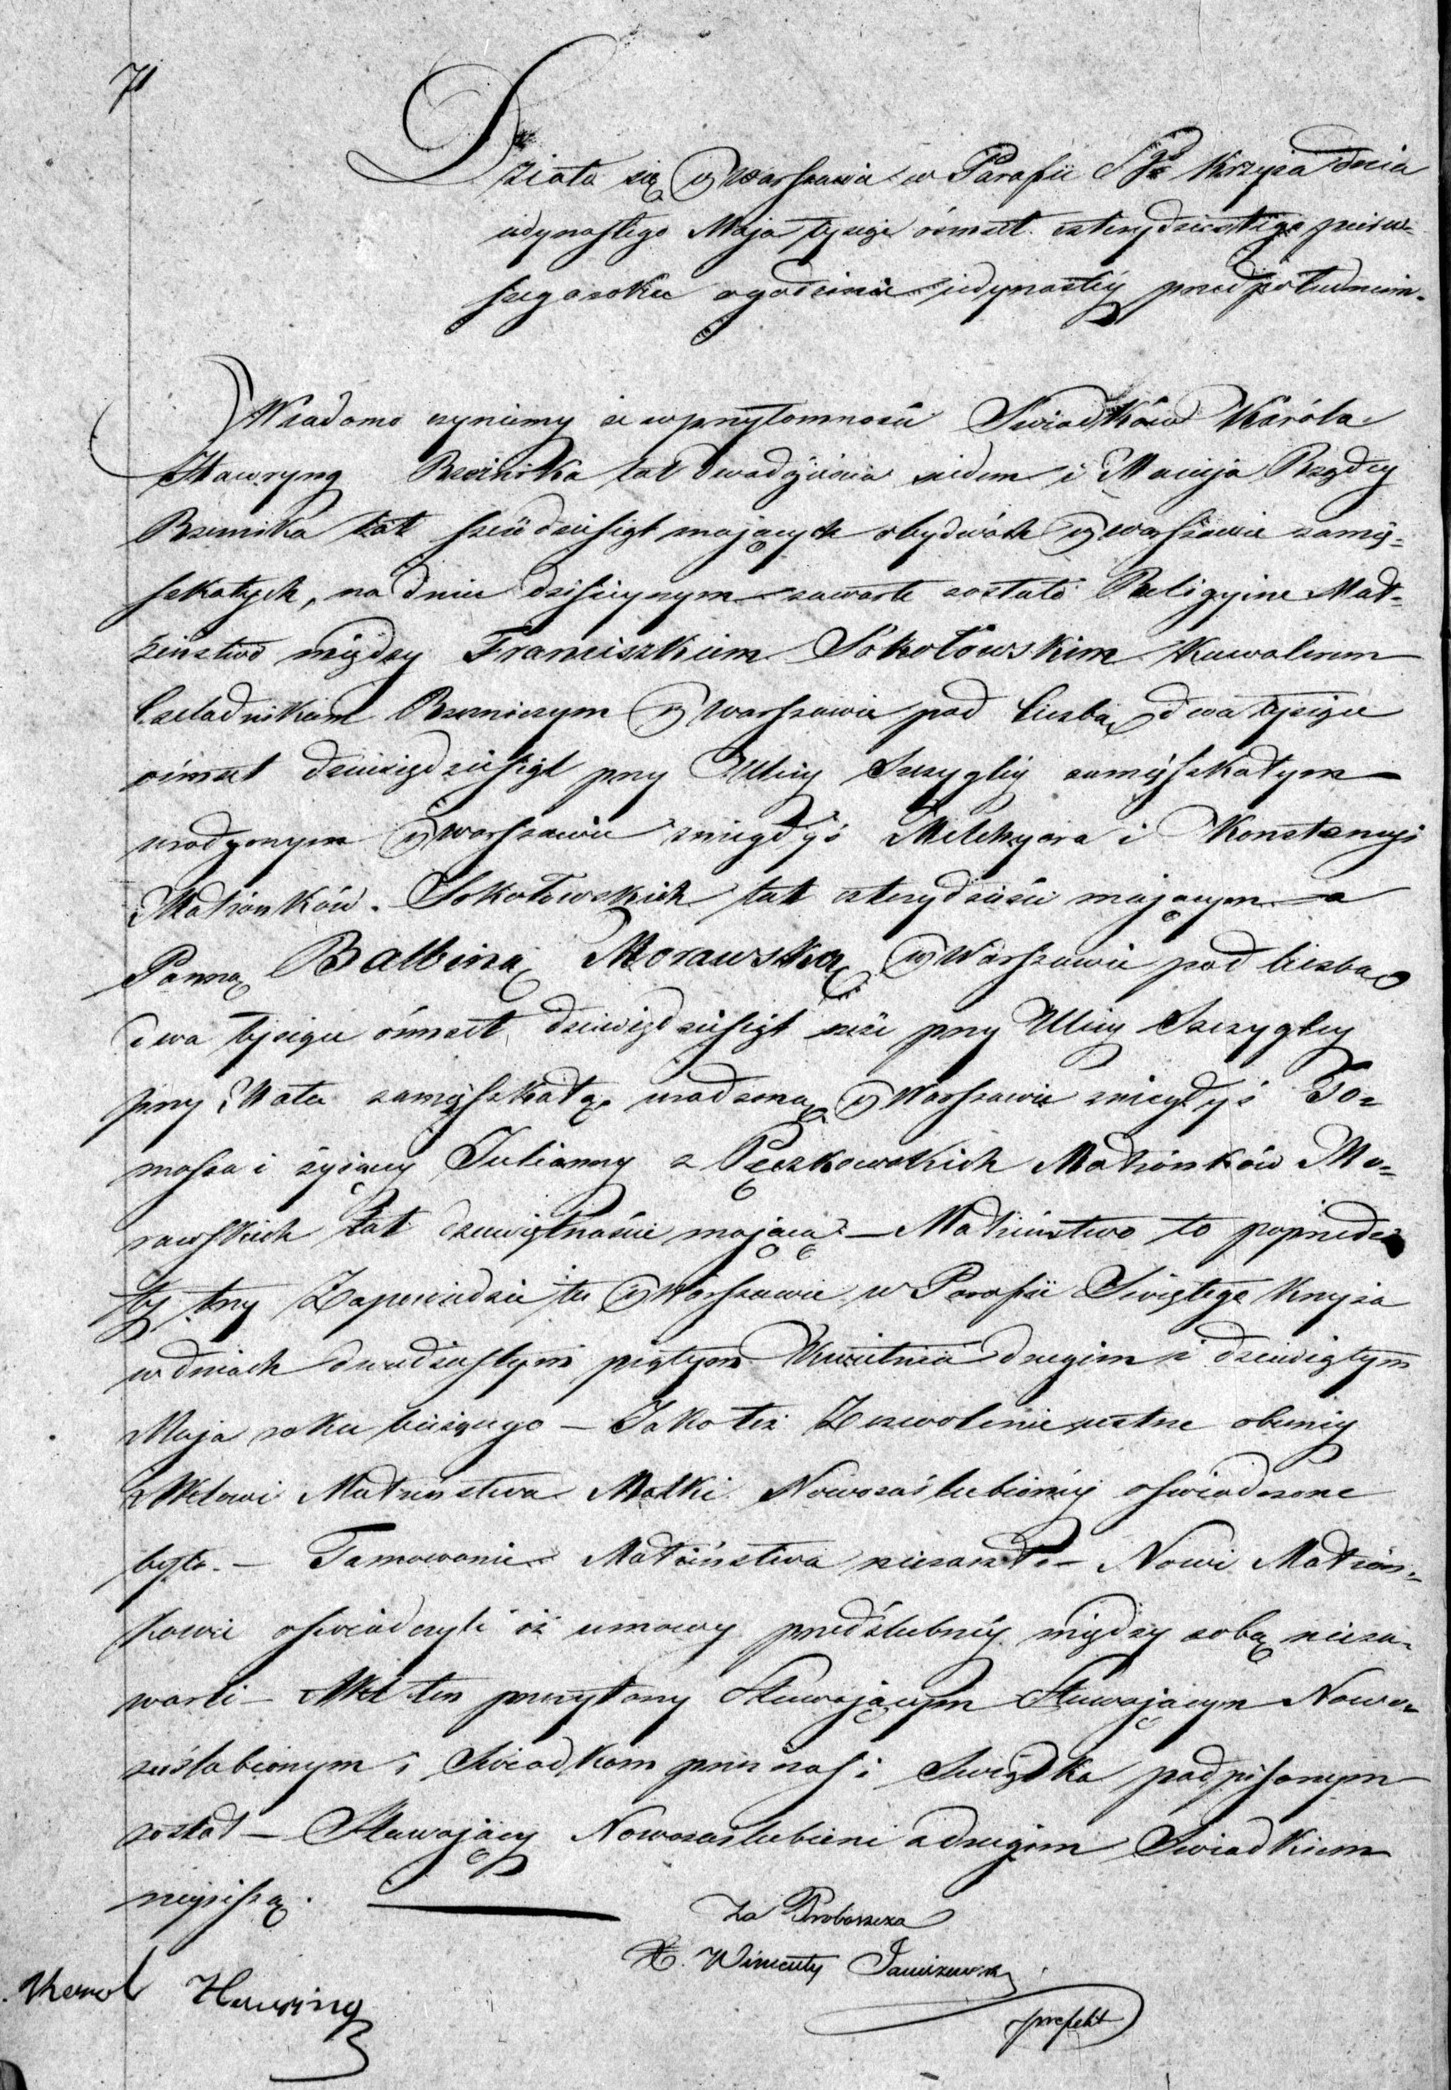 71
Działo się w Warszawie w Parafii Sgo Krzyża dnia
jedynastego Maja tysiąc ośmset czterydziestego pierw-
szego roku o godzinie jedynastéj przed południem.
Wiadomo czyniemy że w przytomności Swiadków Karóla
Hawryng lat dwadzieścia siedem i Macieja Rządcy
Brzemika lat sześćdziesiąt mających obydwóch w Warszawie zamię-
szkałych, na dniu dzisieyszym zawarte zostało Religijne Mał-
żeństwo między Franciszkiem Sokołowskim Kawalerem
Czeladnikiem w Warszawie pod liczbą dwa tysiące
ośmset dziewięćdziesiąt przy Ulicy Szczygléy zamięszkałym
urodzonym w Warszawie z niegdyś Melchyora i Konstancyi
Małżonków Sokołowskich lat czterydzieści mającym a
Panną Balbiną Morawską w Warszawie pod liczbą
dwa tysiące ośmset dziewięćdziesiąt sześć przy Ulicy Szczygley
przy Matce zamięszkałą, urodzoną w Warszawie z niegdyś To-
masza i żyjącey Julianny z Pęczkowskich Małżonków Mo-
rawskich lat dziewiętnaście mającą — Małżeństwo to poprzedzi-
ły trzy Zapowiedzie tu w Warszawie w Parafii Swiętego Krzyża
w dniach dwudziestym piątym Kwietnia drugim i dziewiątym
Maja roku bieżącego — Jako też Zezwolenie ustne obecnéy
Aktowi Małżeństwa Matki Nowozaślubionéy oświadczone
było. — Tamowanie Małżeństwa nie zaszło — Nowi Małżon-
kowie oświadczyli iż umowy przedślubnéy między sobą nieza-
warli — Akt ten przeczytany Stawającym Stawającym Nowo-
zaślubionym i Swiadkom przez nas i Swiadka podpisanym
został — Stawający Nowozaślubieni a drugim Swiadkiem
niepiszą.
Za Proboszcza
X. Wincenty Janiszewski
prefekt
Karol Hawring